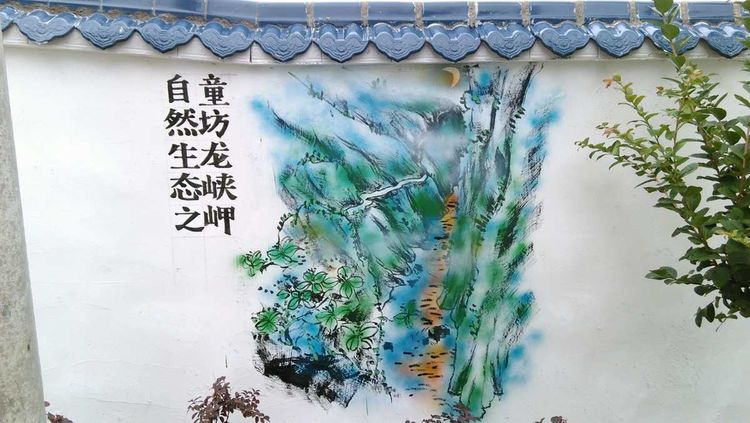 自然生态之
童坊龙峡岬